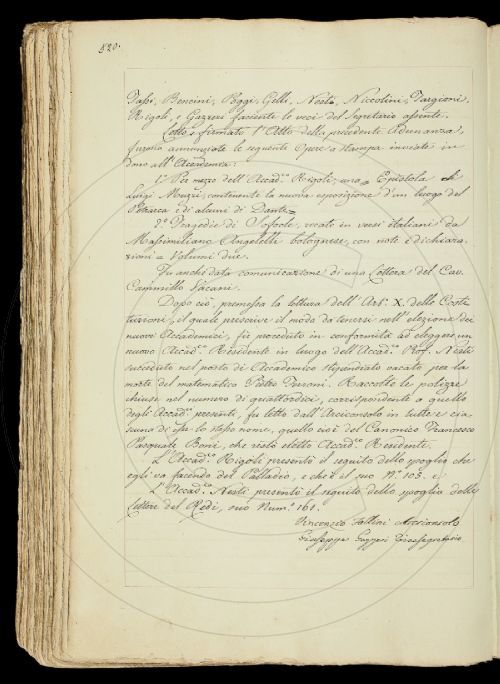 520.
Tassi, Bencini, Poggi, Gelli, Nesti, Niccolini, Targioni,
Rigoli, e Gazzeri facente le veci del Segretario assente.
Letto, e firmato l'Atto della precedente Adunanza,
furono annunziate le seguenti Opere a stampa inviate in
dono all'Accademia:
1.° Per mezzo dell'Accad.co Rigoli, una = Epistola di
Luigi Muzzi, contenente la nuova esposizione d'un luogo del
Petrarca e di alcuni di Dante =
2.° Tragedie di Sofocle, recate in versi italiani da
Massimiliano Angelelli bolognese, con note e dichiara-
zioni = Volumi due.
Fu anche data comunicazione di una Lettera del Cav.
Cammillo Vacani.
Dopo ciò, premessa la lettura dell'Art. X. delle Costi-
tuzioni, il quale prescrive il modo da tenersi nell'elezione dei
nuovi Accademici, fu proceduto in conformità ad eleggere un
nuovo Accad.co Residente in luogo dell'Accad.co Prof. Nesti
succeduto nel posto di Accademico stipendiato vacato per la
morte del matematico Pietro Ferroni. Raccolte le polizze
chiuse nel numero di quattordici, corrispondente a quello
degli Accad.ci presenti, fu letto dall'Arciconsolo in tutte e cia-
scuna di esse lo stesso nome, quello cioè del Canonico Francesco
Pasquale Boni, che restò eletto Accad.co Residente.
L'Accad.co Rigoli presentò il seguito dello spoglio che
egli va facendo del Palladio, e che è il suo N.° 103. e
L'Accad.co Nesti presentò il seguito dello spoglio delle
Lettere del Redi, suo Num.° 161.
Vincenzio Follini Arciconsolo
Giuseppe Gazzeri Prosegretario